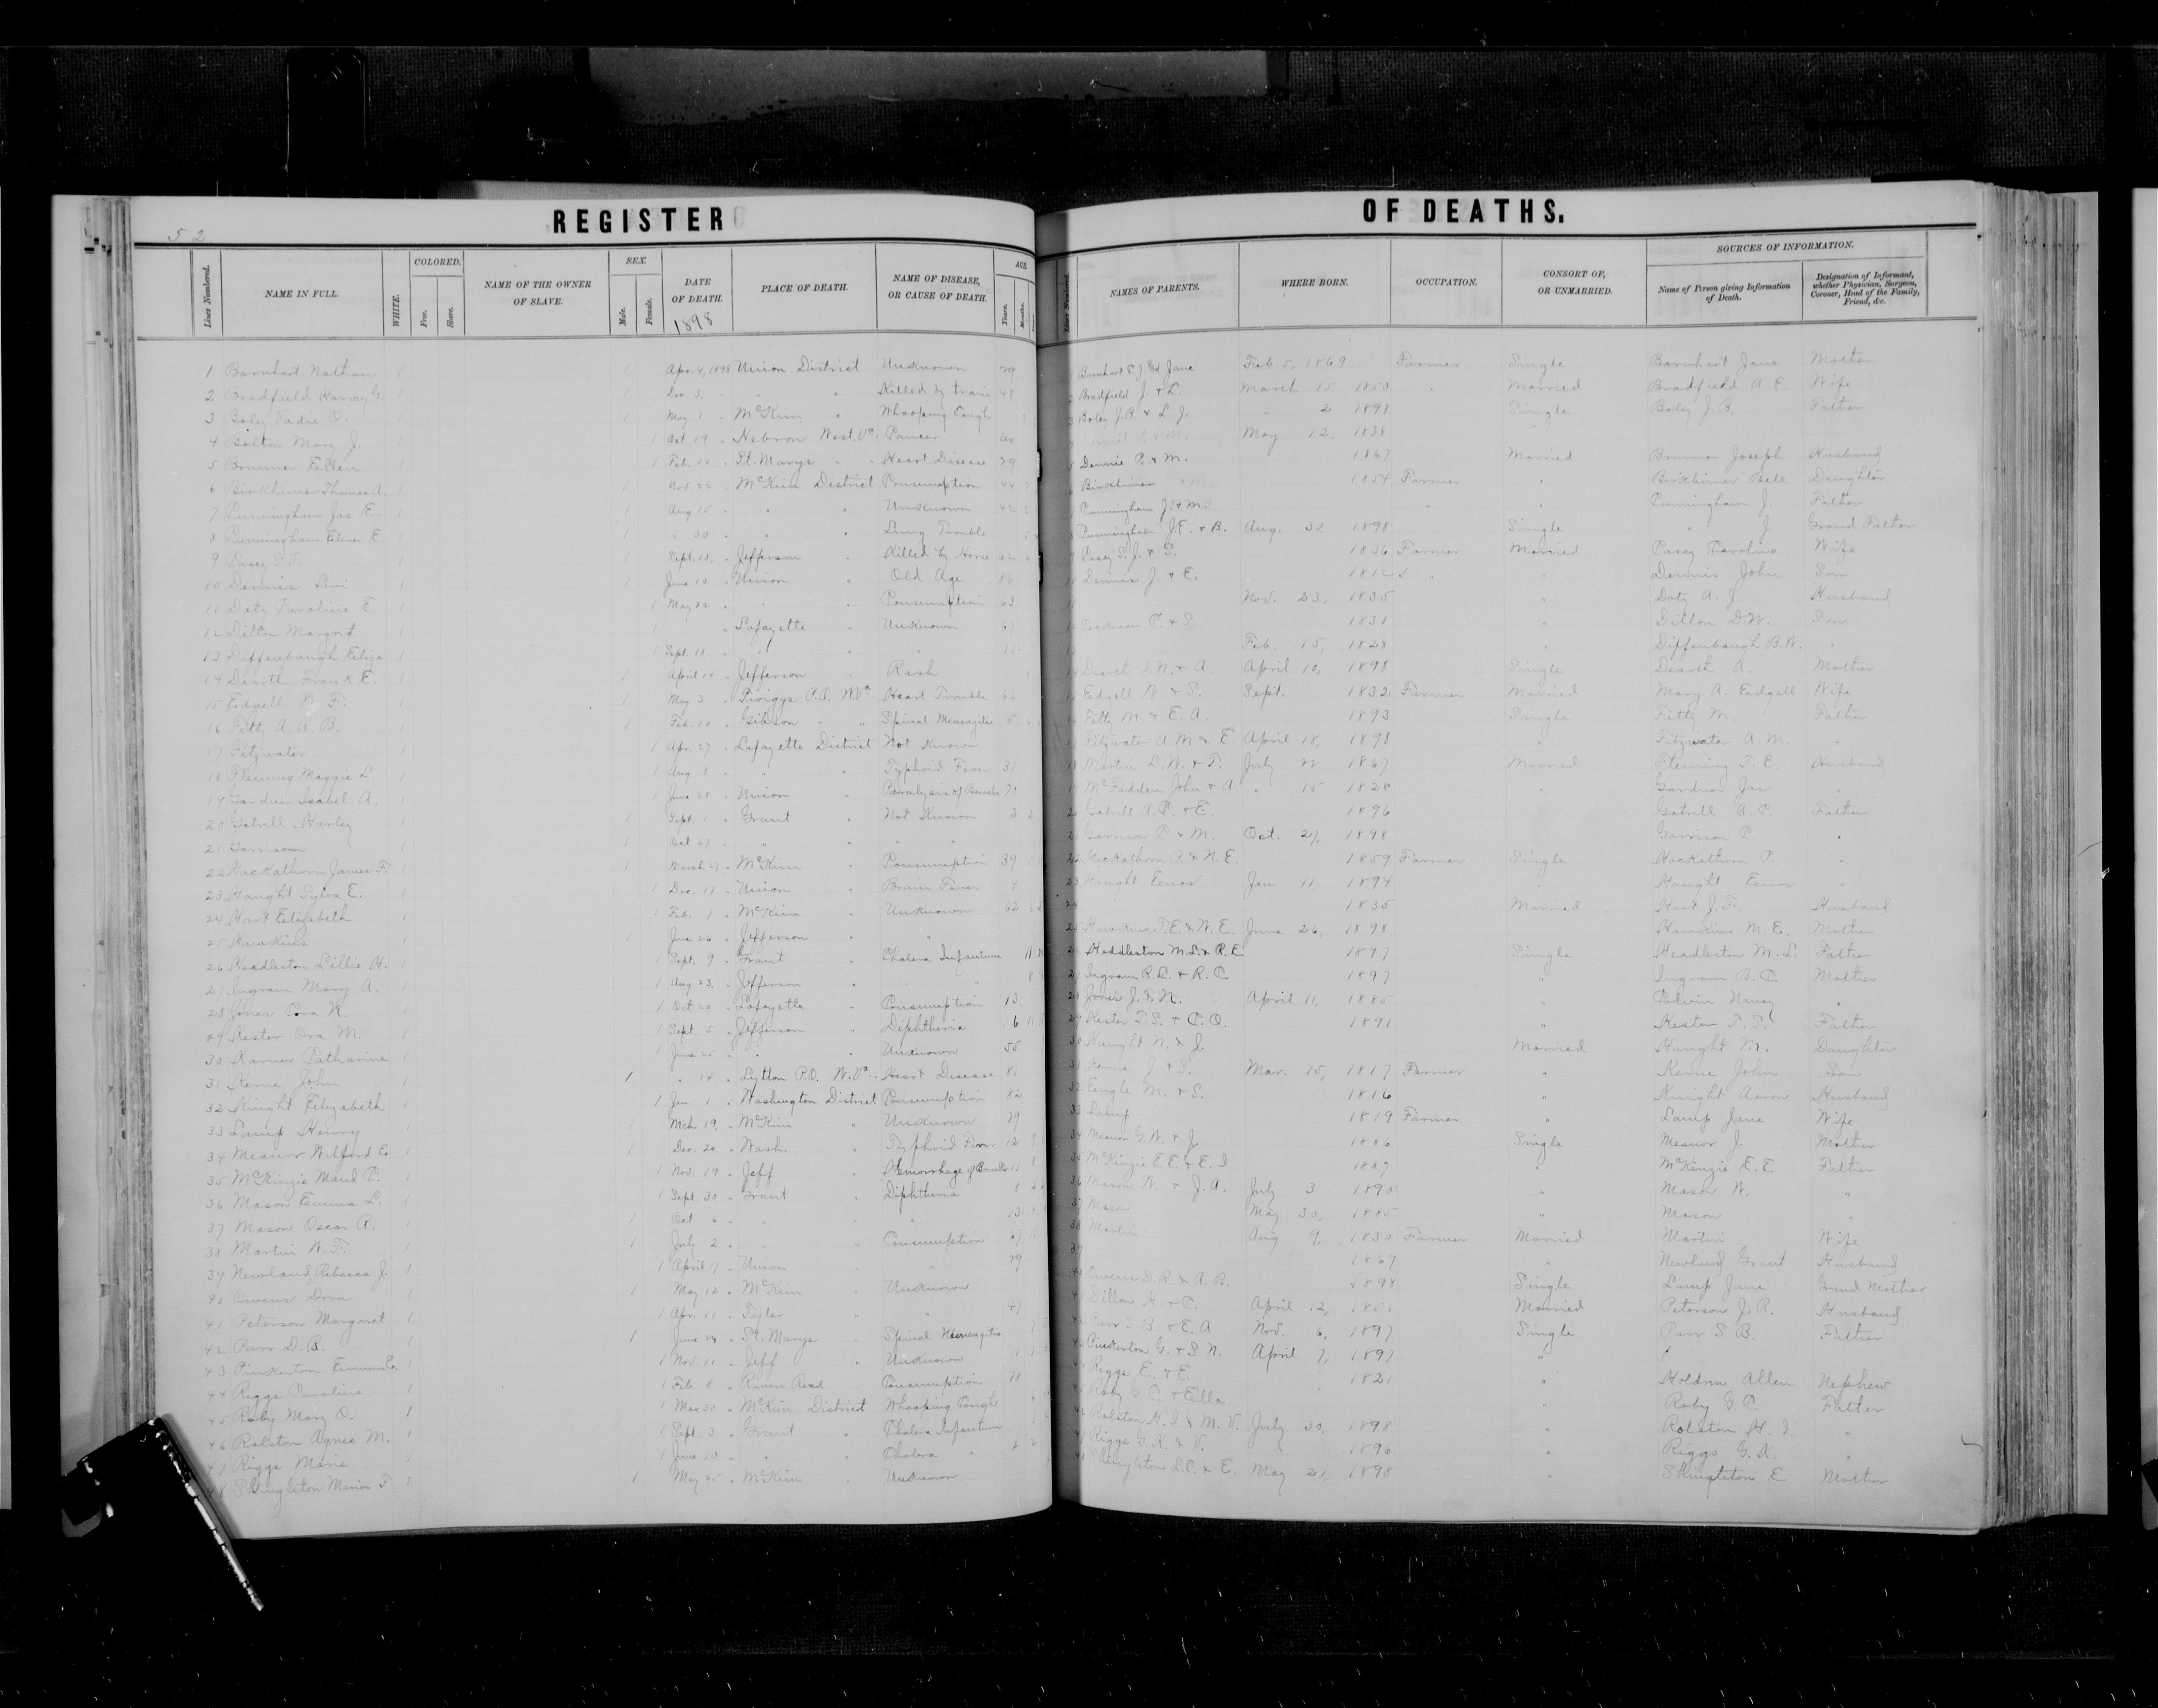 52
REGISTER OF DEATHS.
Lines Numbered. NAME IN FULL. WHITE. COLORED. Free. Slave. NAME OF THE OWNER OF SLAVE. SEX. Male. Female. DATE OF DEATH. 1898 PLACE OF DEATH. NAME OF DISEASE, OR CAUSE OF DEATH. AGE. Years. Months.
Lines Numbered. NAMES OF PARENTS. WHERE BORN. OCCUPATION. CONSORT OF, OR UNMARRIED. SOURCES OF INFORMATION. Name of Person giving Information of Death. Designation of Informant, whether Physician, Surgeon, Coroner, Head of the Family, Friend, &c.
1 Barnhart Nathan 1 1 Apr. 4, 1898 Union District Unknown 29 Barnhart Jane Feb 5, 1869 Farmer Single Barnhart Jane Mother
2 Bradfield 1 1 Dec. 3, " " " Killed by train 48 Bradfield J. & L. March 15 1850 " Married Bradfield A. E. Wife
3 Boley Vadie O. 1 1 May 1 " McKim " Whooping Cough Boley J. B. & L. J. " 2 1898 Single Boley J. B. Father
4 Bolton Mary J. 1 1 Oct. 19 " Hebron West. Va. Cancer 60 May 12, 1838 "
5 Brunner Ellen 1 1 Feb. 14 " St. Marys " " Heart Disease 29 Dennie P. & M. 1867 Married Brunner Joseph Husband
6 Birkhimer Thomas A. 1 1 Nov. 22 " McKim District Consumption 44 Birkhimer 1854 Farmer " Birkhimer Bell Daughter
7 Cunningham Jas E. 1 1 Aug 15 " " " Unknown 42 Cunningham J. & M. " " Cunningham J. Father
8 Cunningham Elmer E. 1 1 " 30 " " " Lung Trouble Cunningham J. E. & B. Aug. 30. 1898 Single " J Grand Father
9 Casey S. V. 1 1 Sept. 18, " Jefferson " Killed by Horse 62 Casey S. J. & S. 1836 Farmer Married Casey Caroline Wife
10 Dennis Levi 1 1 June 10 " Union " Old Age 86 Dennis J. & E. 1812 " " Dennis John Son
11 Doty Caroline E 1 1 May 22 " " " Consumption 63 Nov. 23, 1835 " Doty A. J. Husband
12 Dillon Margret 1 1 " Lafayette " Unknown 67 C. & S. 1831 " Dillon D. W. Son
13 Diffenbaugh Eliza 1 1 Sept. 18 " " " " Feb. 15, 1828 " Diffenbaugh B. W. "
14 Dearth Frank E. 1 1 April 14 " Jefferson " Rash Dearth I. N. & A. April 10, 1898 Single Dearth A. Mother
15 Edgell W. F. 1 1 May 3 " Twiggs P.O. W.Va. Heart Trouble 66 Edgell W. & S. Sept. 1832 Farmer Married Mary A. Eedgell Wife
16 Fetty A. R. B. 1 1 Feb. 10 " Gibson " " Spinal Meningitis Fetty M & E. A. 1893 Single Fetty M. Father
17 Fitzwater 1 1 Apr. 27 " Lafayette District Not Known Fitzwater A. M & E. April 18, 1898 " Fitzwater A M. "
18 Fleming Maggie L. 1 1 Aug 8 " " " Typhoid Fever 31 Martin L. W. & T. July 22 1867 Married Fleming T. E. Husband
19 Gardner Isabel A. 1 1 June 28 " Union " Paralysis of Bowels 70 McFadden John & A " 15 1828 Gardner Jas "
20 Gatrell Harley 1 1 Sept. 1 " Grant " Not Known 2 Gatrell A. C. & E. 1896 Gatrell A. C. Father
21 Garrison 1 1 Oct 27 " " " " " Garrison C. & M. Oct. 27, 1898 Garrison C. "
22 Hackathorn James F. 1 1 March 27 " McKim " Consumption 39 Hackathorn P. & N. E. 1859 Farmer Single Hackathorn P. "
23 Haught Sylva E. 1 1 Dec. 11 " Union " Brain Fever 4 Haught Eenos Jan 11, 1894 " Haught Eenos "
24 Hart Elizabeth 1 1 Feb. 7 " McKim " Unknown 62 1835 Married Hart J. F. Husband
25 Hawkins 1 1 June 26 " Jefferson " " Hawkins T. E. & W. E. June 26, 1898 Hawkins M. E. Mother
26 Headleston Lillie H. 1 1 Sept. 9 " Grant " Cholera Infantum 11 Heddleston M. L. & R. E 1897 Single Headleston M. L. Father
27 Ingram Mary A. 1 1 Aug 23, " Jefferson " " 8 Ingram R. L. & R. C. 1897 " Ingram R. C. Mother
28 Jones Cora N. 1 1 Oct 20 " Lafayette " Consumption 13 Jones J. S. N. April 11, 1885 " Colvin Nancy "
29 Kester Ora M. 1 1 Sept. 5 " Jefferson " Diphtheria 6 Kester T. S. & C. O. 1891 " Kester T. S. Father
30 Catharine 1 1 June 25 " " " Unknown 55 Haught N. & J. Married Haught M. Daughter
31 Kerne John 1 1 " 14 " Lytton P.O. W. Va. Heart Disease 81 Kerne J. & S. Mar. 15, 1817 Farmer " Kerne John Son
32 Knight Elizabeth 1 1 Jan 1 " Washington District Consumption 82 M. & S. 1816 " Knight Aaron Husband
33 Lamp Henry 1 Mch 19, " McKim " Unknown 79 Lamp 1819 Farmer " Lamp Jane Wife
34 Meanor Walford E 1 1 Dec. 20 " Wash. " Typhoid Fever 12 Meanor G. W. & J. 1886 Single Meanor J. Mother
35 McKinzie Maud P. 1 1 Nov. 19 " Jeff " Hemorrhage of Bowels 11 McKinzie E. E. & E. I 1887 " McKenzie E. E. Father
36 Mason Emma L. 1 1 Sept 30 " Grant " Diphtheria 8 Mason W. & J. A. July 3 1890 " Mason W. "
37 Mason Oscar A. 1 1 Oct 6 " " " " 13 Mason May 30, 1885 " Mason "
38 Martin 1 1 July 2 " " " Consumption 67 Martin Aug 9, 1830 Farmer Married Martin Wife
39 Newland Rebecca J. 1 1 April 17 " Union " " 29 1869 " Newland Grant Husband
40 Owens Dora 1 1 May 12 " McKim " Unknown Owens D. R. & A. B. 1898 Single Lamp Jane Grand Mother
41 Peterson Margaret 1 1 Apr. 11 " Tyler " " 47 Dillon H. & C. April 12, 1851 Married Peterson J. R. Husband
42 Parr D. B. 1 1 June 24 " St. Marys " Spinal Meningitis Parr S. B. & E. A Nov. 6, 1897 Single Parr S. B. Father
43 Pinkerton 1 1 Nov. 11 " Jeff " Unknown Pinkerton G. & S N. April 7, 1897 "
44 Riggs Caroline 1 1 Feb 8 " Raven Rock Consumption Riggs E. & E. 1821 " Allen Nephew
45 Roby Mary O. 1 1 Mar 30 " McKim District Whooping Cough Roby G. C. & Ella " Roby G C. Father
46 Ralston Agnes M. 1 1 Sept. 3 " Grant " Cholera Infantum Ralston H. I & M. V. July 30, 1898 " Rolston H. I. "
47 Riggs Marie 1 1 June 10 " " " Cholera " 2 Riggs G. K. & V. 1896 " Riggs G. K. "
48 Shingleton 1 1 May 25 " McKim " Unknown Shingleton L. C. & E. May 21, 1898 " Shingleton E Mother